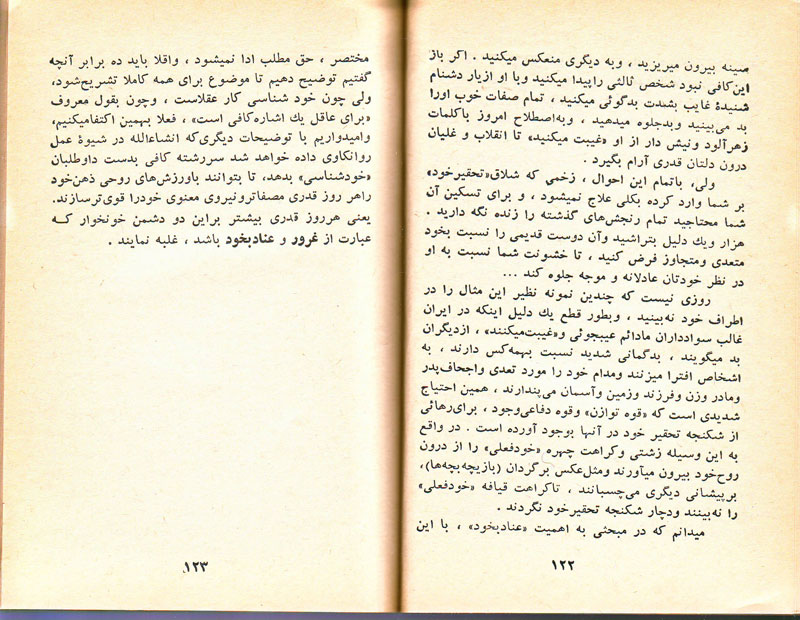 سینه بیرون میریزید ، وبه دیگری منعکس میکنید . اگر باز
این‌کافی نبود شخص ثالثی راپیدا میکنید وبا او ازیار دشنام
شنیدهٔ غایب بشدت بدگوئی میکنید ، تمام صفات خوب اورا
بد می‌بینید وبدجلوه میدهید ، وبه‌اصطلاح امروز باکلمات
زهرآلود ونیش دار از او «غیبت میکنید» تا انقلاب و غلیان
درون دلتان قدری آرام بگیرد .
ولی، باتمام این احوال ، زخمی که شلاق«تحقیرخود»
بر شما وارد کرده بکلی علاج نمیشود ، و برای تسکین آن
شما محتاجید تمام رنجش‌های گذشته را زنده نگه دارید .
هزار ویك دلیل بتراشید وآن دوست قدیمی را نسبت بخود
متعدی ومتجاوز فرض کنید ، تا خشونت شما نسبت به او
در نظر خودتان عادلانه و موجه جلوه کند ...
روزی نیست که چندین نمونه نظیر این مثال را در
اطراف خود نه‌بینید ، وبطور قطع یك دلیل اینکه در ایران
غالب سوادداران مادائم عیبجوئی و«غیبت‌میکنند» ، ازدیگران
بد میگویند ، بدگمانی شدید نسبت بهمه‌کس دارند ، به
اشخاص افترا میزنند ومدام خود را مورد تعدی واجحاف‌پدر
ومادر وزن وفرزند وزمین وآسمان می‌پندارند ، همین احتیاج
شدیدی است که «قوه توازن» وقوه دفاعی‌وجود ، برای‌رهائی
از شکنجه تحقیر خود در آنها بوجود آورده است . در واقع
به این وسیله زشتی وکراهت چهره «خودفعلی» را از درون
روح‌خود بیرون میآورند ومثل‌عکس برگردان (بازیچه‌بچه‌ها)،
برپیشانی دیگری می‌چسبانند ، تاکراهت قیافه «خودفعلی»
را نه‌بینند ودچار شکنجه تحقیرخود نگردند .
میدانم که در مبحثی به اهمیت «عنادبخود» ، با این
۱۲۲
مختصر ، حق مطلب ادا نمیشود ، واقلا باید ده برابر آنچه
گفتیم توضیح دهیم تا موضوع برای همه کاملا تشریح‌شود،
ولی چون خود شناسی کار عقلاست ، وچون بقول معروف
«برای عاقل یك اشاره‌کافی است» ، فعلا بهمین اکتفامیکنیم،
وامیدواریم با توضیحات دیگری‌که انشاءالله در شیوهٔ عمل
روانکاوی داده خواهد شد سررشته کافی بدست داوطلبان
«خودشناسی» بدهد، تا بتوانند باورزش‌های روحی ذهن‌خود
راهر روز قدری مصفاترونیروی معنوی خودرا قوی‌ترسازند.
یعنی هرروز قدری بیشتر براین دو دشمن خونخوار که
عبارت از غرور و عنادبخود باشد ، غلبه نمایند .
۱۲۳